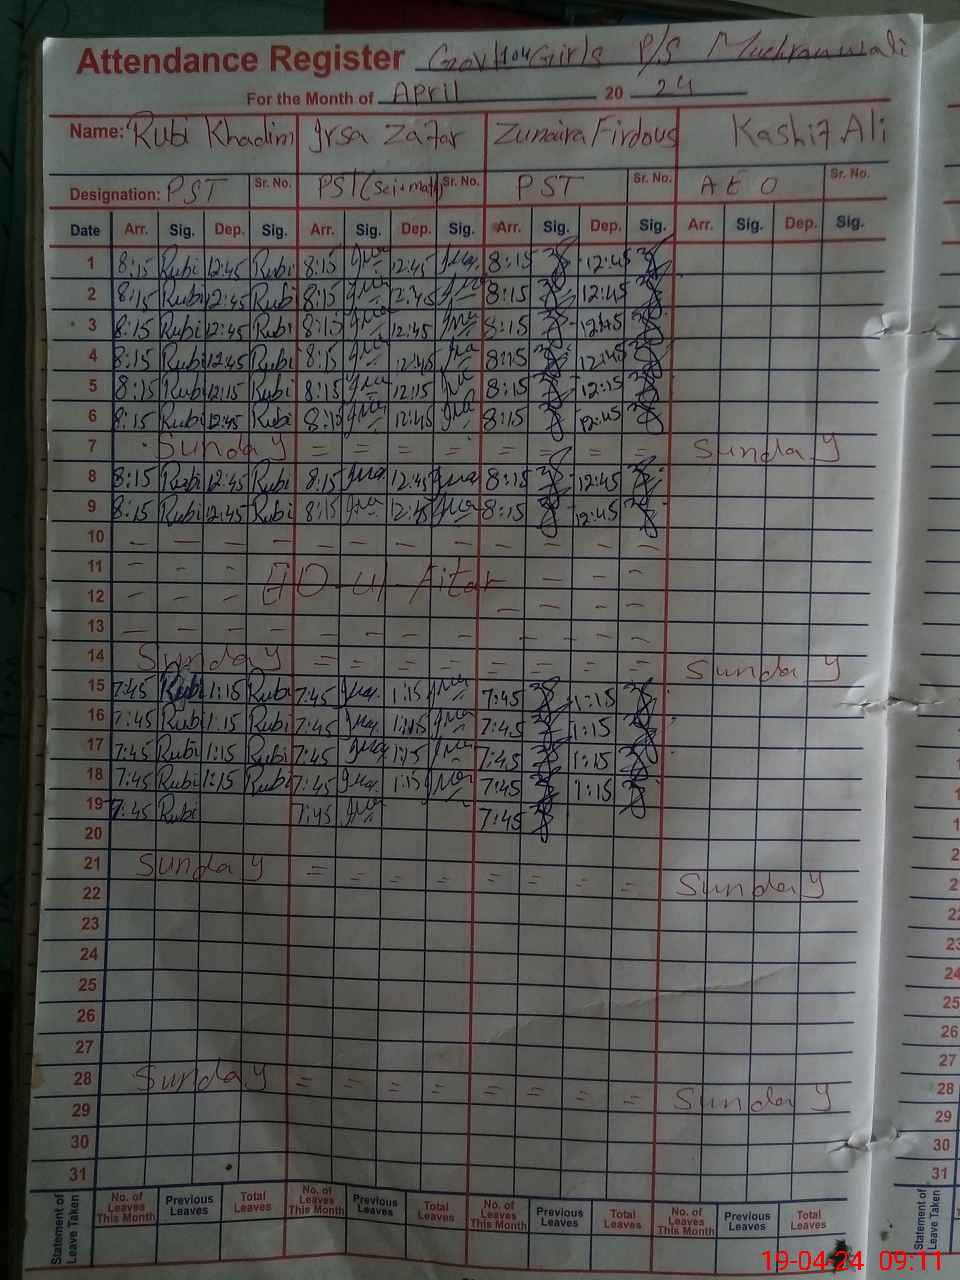 Attendance Register Govt Girls P/S
For the Month of April 20 24
Name: Rubi Khadim Irsa Zafar Zunaira Firdous Kashif Ali
Designation: PST Sr. No. PST (Sci+math) Sr. No. PST Sr. No. AEO Sr. No.
Date Arr. Sig. Dep. Sig. Arr. Sig. Dep. Sig. Arr. Sig. Dep. Sig. Arr. Sig. Dep. Sig.
1 8:15 Rubi 12:45 Rubi 8:15 12:45 8:15 12:45
2 8:15 Rubi 12:45 Rubi 8:15 12:45 8:15 12:45
3 8:15 Rubi 12:45 Rubi 8:15 12:45 8:15 12:45
4 8:15 Rubi 12:45 Rubi 8:15 12:45 8:15 12:45
5 8:15 Rubi 12:15 Rubi 8:15 12:15 8:15 12:15
6 8:15 Rubi 12:45 Rubi 8:15 12:45 8:15 12:45
7 Sunday = = = = = = = = Sunday
8 8:15 Rubi 12:45 Rubi 8:15 12:45 8:15 12:45
9 8:15 Rubi 12:45 Rubi 8:15 12:45 8:15 12:45
10 – – – – – – – – – – – –
11 – – – – – –
12 – – – EID-ul-Fitar – – – –
13 – – – – – – – – – – – –
14 Sunday = = = = = = = = Sunday
15 7:45 Rubi 1:15 Rubi 7:45 1:15 7:45 1:15
16 7:45 Rubi 1:15 Rubi 7:45 1:15 7:45 1:15
17 7:45 Rubi 1:15 Rubi 7:45 1:15 7:45 1:15
18 7:45 Rubi 1:15 Rubi 7:45 1:15 7:45 1:15
19 7:45 Rubi 7:45 7:45
20
21 Sunday = = = = = = = = Sunday
22
23
24
25
26
27
28 Sunday = = = = = = = = Sunday
29
30
31
Statement of Leave Taken No. of Leaves This Month Previous Leaves Total Leaves No. of Leaves This Month Previous Leaves Total Leaves No. of Leaves This Month Previous Leaves Total Leaves No. of Leaves This Month Previous Leaves Total Leaves
19-04-24 09:11